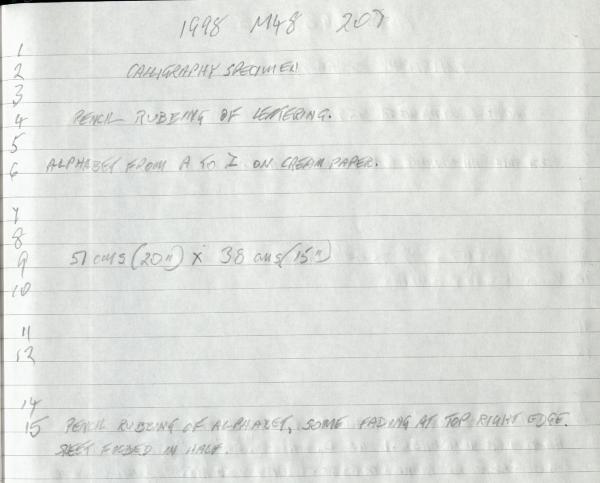 1998 M48 207
1
2 CALLIGRAPHY SPECIMEN
3
4 PENCIL RUBBING OF LETTERING.
5
6 ALPHABET FROM A TO I ON CREAM PAPER.
7
8
9 51 cms (20") x 38 cms (15")
10
11
12
14
15 PENCIL RUBBING OF ALPHABET, SOME FADING AT TOP RIGHT EDGE.
FOLDED IN HALF.